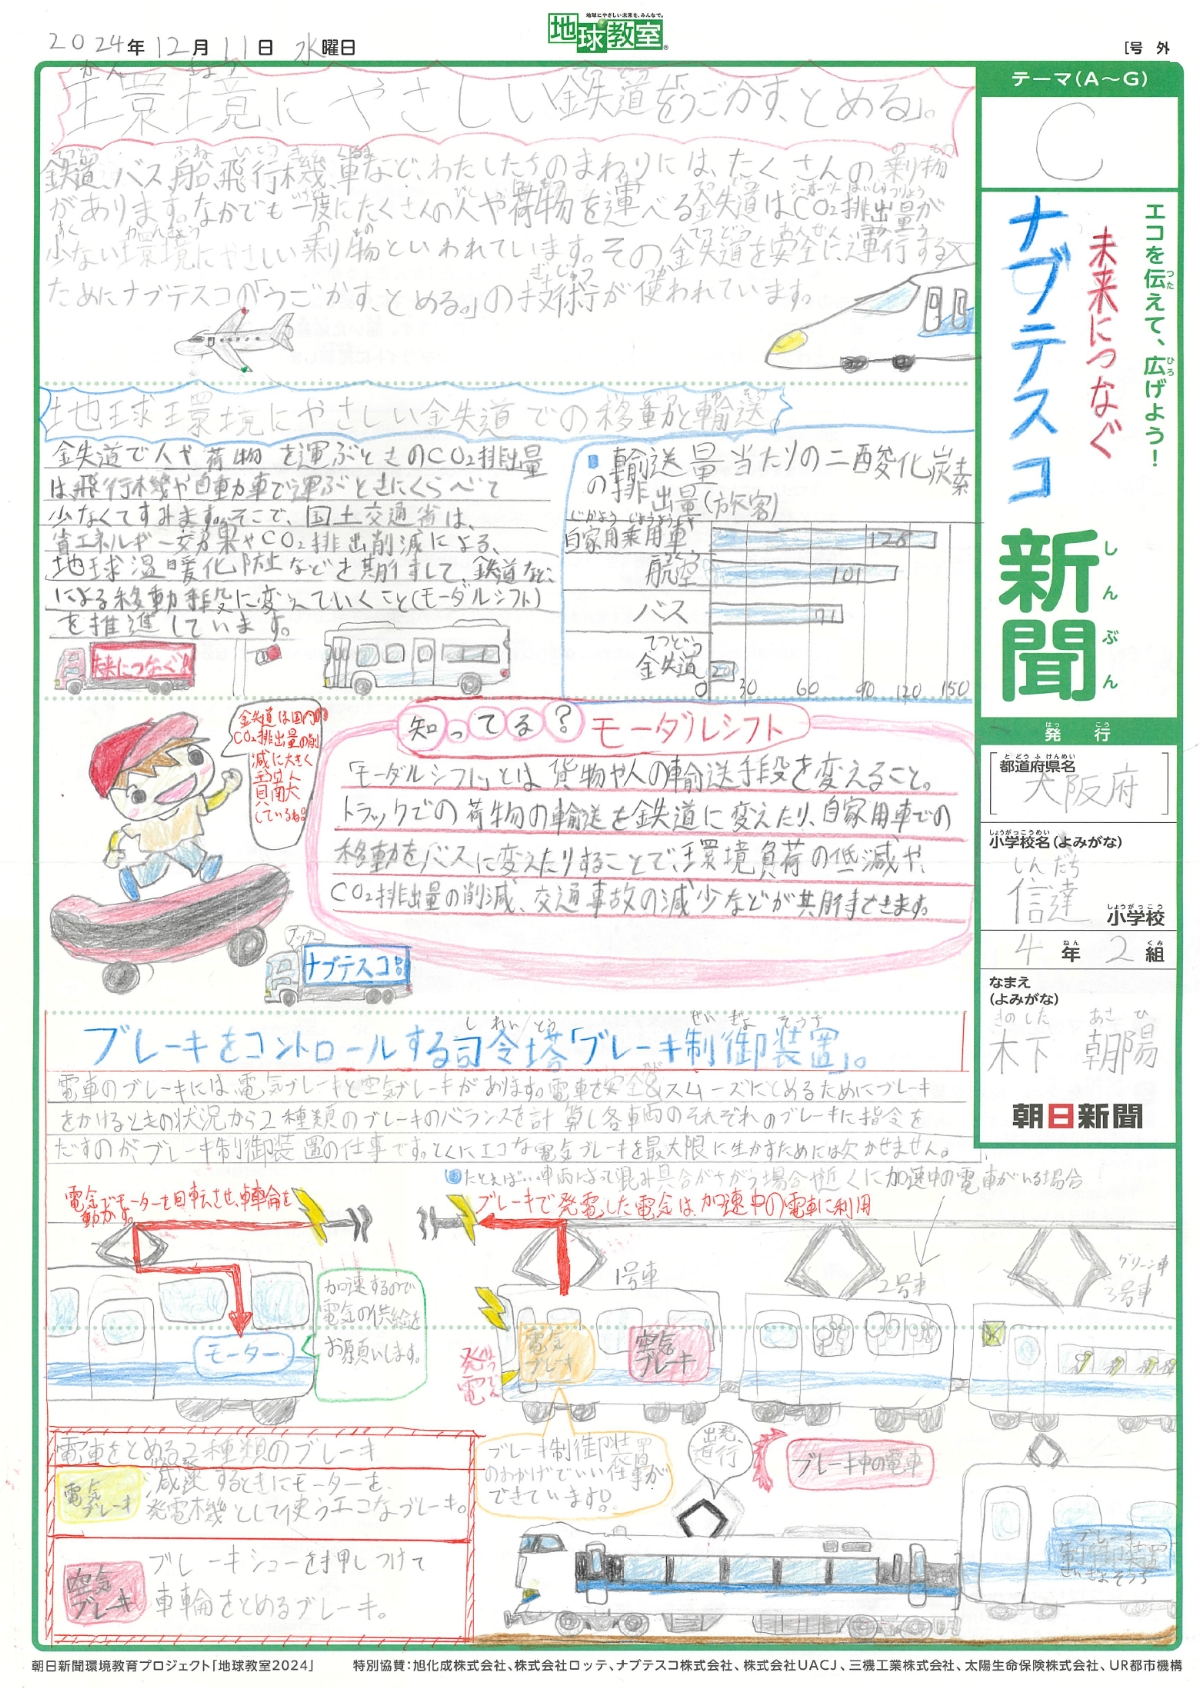 2024年12月11日 水曜日
地球にやさしい未来を、みんなで。
地球教室
[号 外
環境にやさしい鉄道を「うごかす、とめる」。
鉄道、バス、船、飛行機、車など、わたしたちのまわりには、たくさんの乗り物
があります。なかでも一度にたくさんの人や荷物を運べる鉄道はCO2排出量が
少ない環境にやさしい乗り物といわれています。その鉄道を安全に運行する
ためにナブテスコの「うごかす、とめる。」の技術が使われています。
地球環境にやさしい鉄道での移動と輸送
鉄道で人や荷物を運ぶときのCO2排出量
は、飛行機や自動車で運ぶときにくらべて
少なくてすみます。そこで、国土交通省は、
省エネルギー効果やCO2排出削減による、
地球温暖化防止などを期待して、鉄道など
による移動手段に変えていくこと(モーダルシフト)
を推進しています。
未来につなぐ!!
輸送量当たりの二酸化炭素
の排出量(旅客)
じかようじょうようしゃ
自家用乗用車 128
航空 101
バス 71
てつどう
鉄道 20
0 30 60 90 120 150
鉄道は国内の
CO2排出量の削
減に大きく
貢献
しているね!
知ってる? モーダルシフト
「モーダルシフト」とは貨物や人の輸送手段を変えること。
トラックでの荷物の輸送を鉄道に変えたり、自家用車での
移動をバスに変えたりすることで、環境負荷の低減や、
CO2排出量の削減、交通事故の減少などが期待できます。
ナブテスコ
しれいとう せいぎょそうち
ブレーキをコントロールする司令塔「ブレーキ制御装置」。
電車のブレーキには、電気ブレーキと空気ブレーキがあります。電車を安全&スムーズにとめるためにブレーキ
をかけるときの状況から2種類のブレーキのバランスを計算し各車両のそれぞれのブレーキに指令を
だすのがブレーキ制御装置の仕事です。とくにエコな電気ブレーキを最大限に生かすためには欠かせません。
たとえば… 車両によって混み具合がちがう場合や近くに加速中の電車がいる場合
電気でモーターを回転させ、車輪を
動かす。
ブレーキで発電した電気は、加速中の電車に利用
モーター
加速するので
電気の供給を
お願いします。
1号車
2号車
グリーン車
3号車
はつでん
発電
電気
ブレーキ
空気
ブレーキ
電車をとめる2種類のブレーキ
電気
ブレーキ
減速するときにモーターを、
発電機として使うエコなブレーキ。
空気
ブレーキ
ブレーキシューを押しつけて
車輪をとめるブレーキ。
ブレーキ制御装置
のおかげでいい仕事が
できています!
出発、
進行
ブレーキ中の電車
せいぎょそうち
テーマ(A～G)
C
エコを伝えて、広げよう!
未来につなぐ
ナブテスコ
新聞
しんぶん
発行
はっこう
とどうふけんめい
都道府県名
[大阪府]
しょうがっこうめい
小学校名(よみがな)
しんだち
信達 小学校
しょうがっこう
4年 2組
なまえ
(よみがな)
きのした あさひ
木下 朝陽
朝日新聞
朝日新聞環境教育プロジェクト「地球教室2024」 特別協賛：旭化成株式会社、株式会社ロッテ、ナブテスコ株式会社、株式会社UACJ、三機工業株式会社、太陽生命保険株式会社、UR都市機構